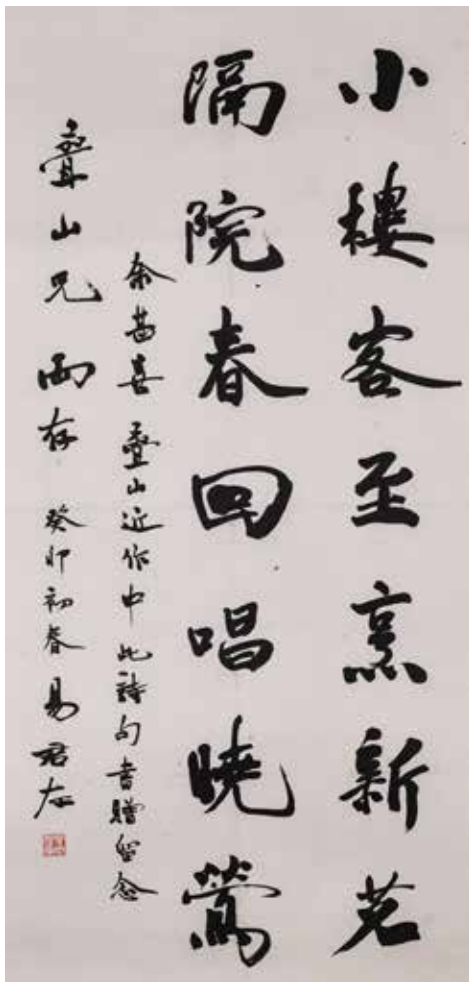 小樓客至烹新茗
隔院春回唱曉鶯
余甚喜疊山近作中此詩句書贈留念
疊山兄兩存 癸卯初春 易君左